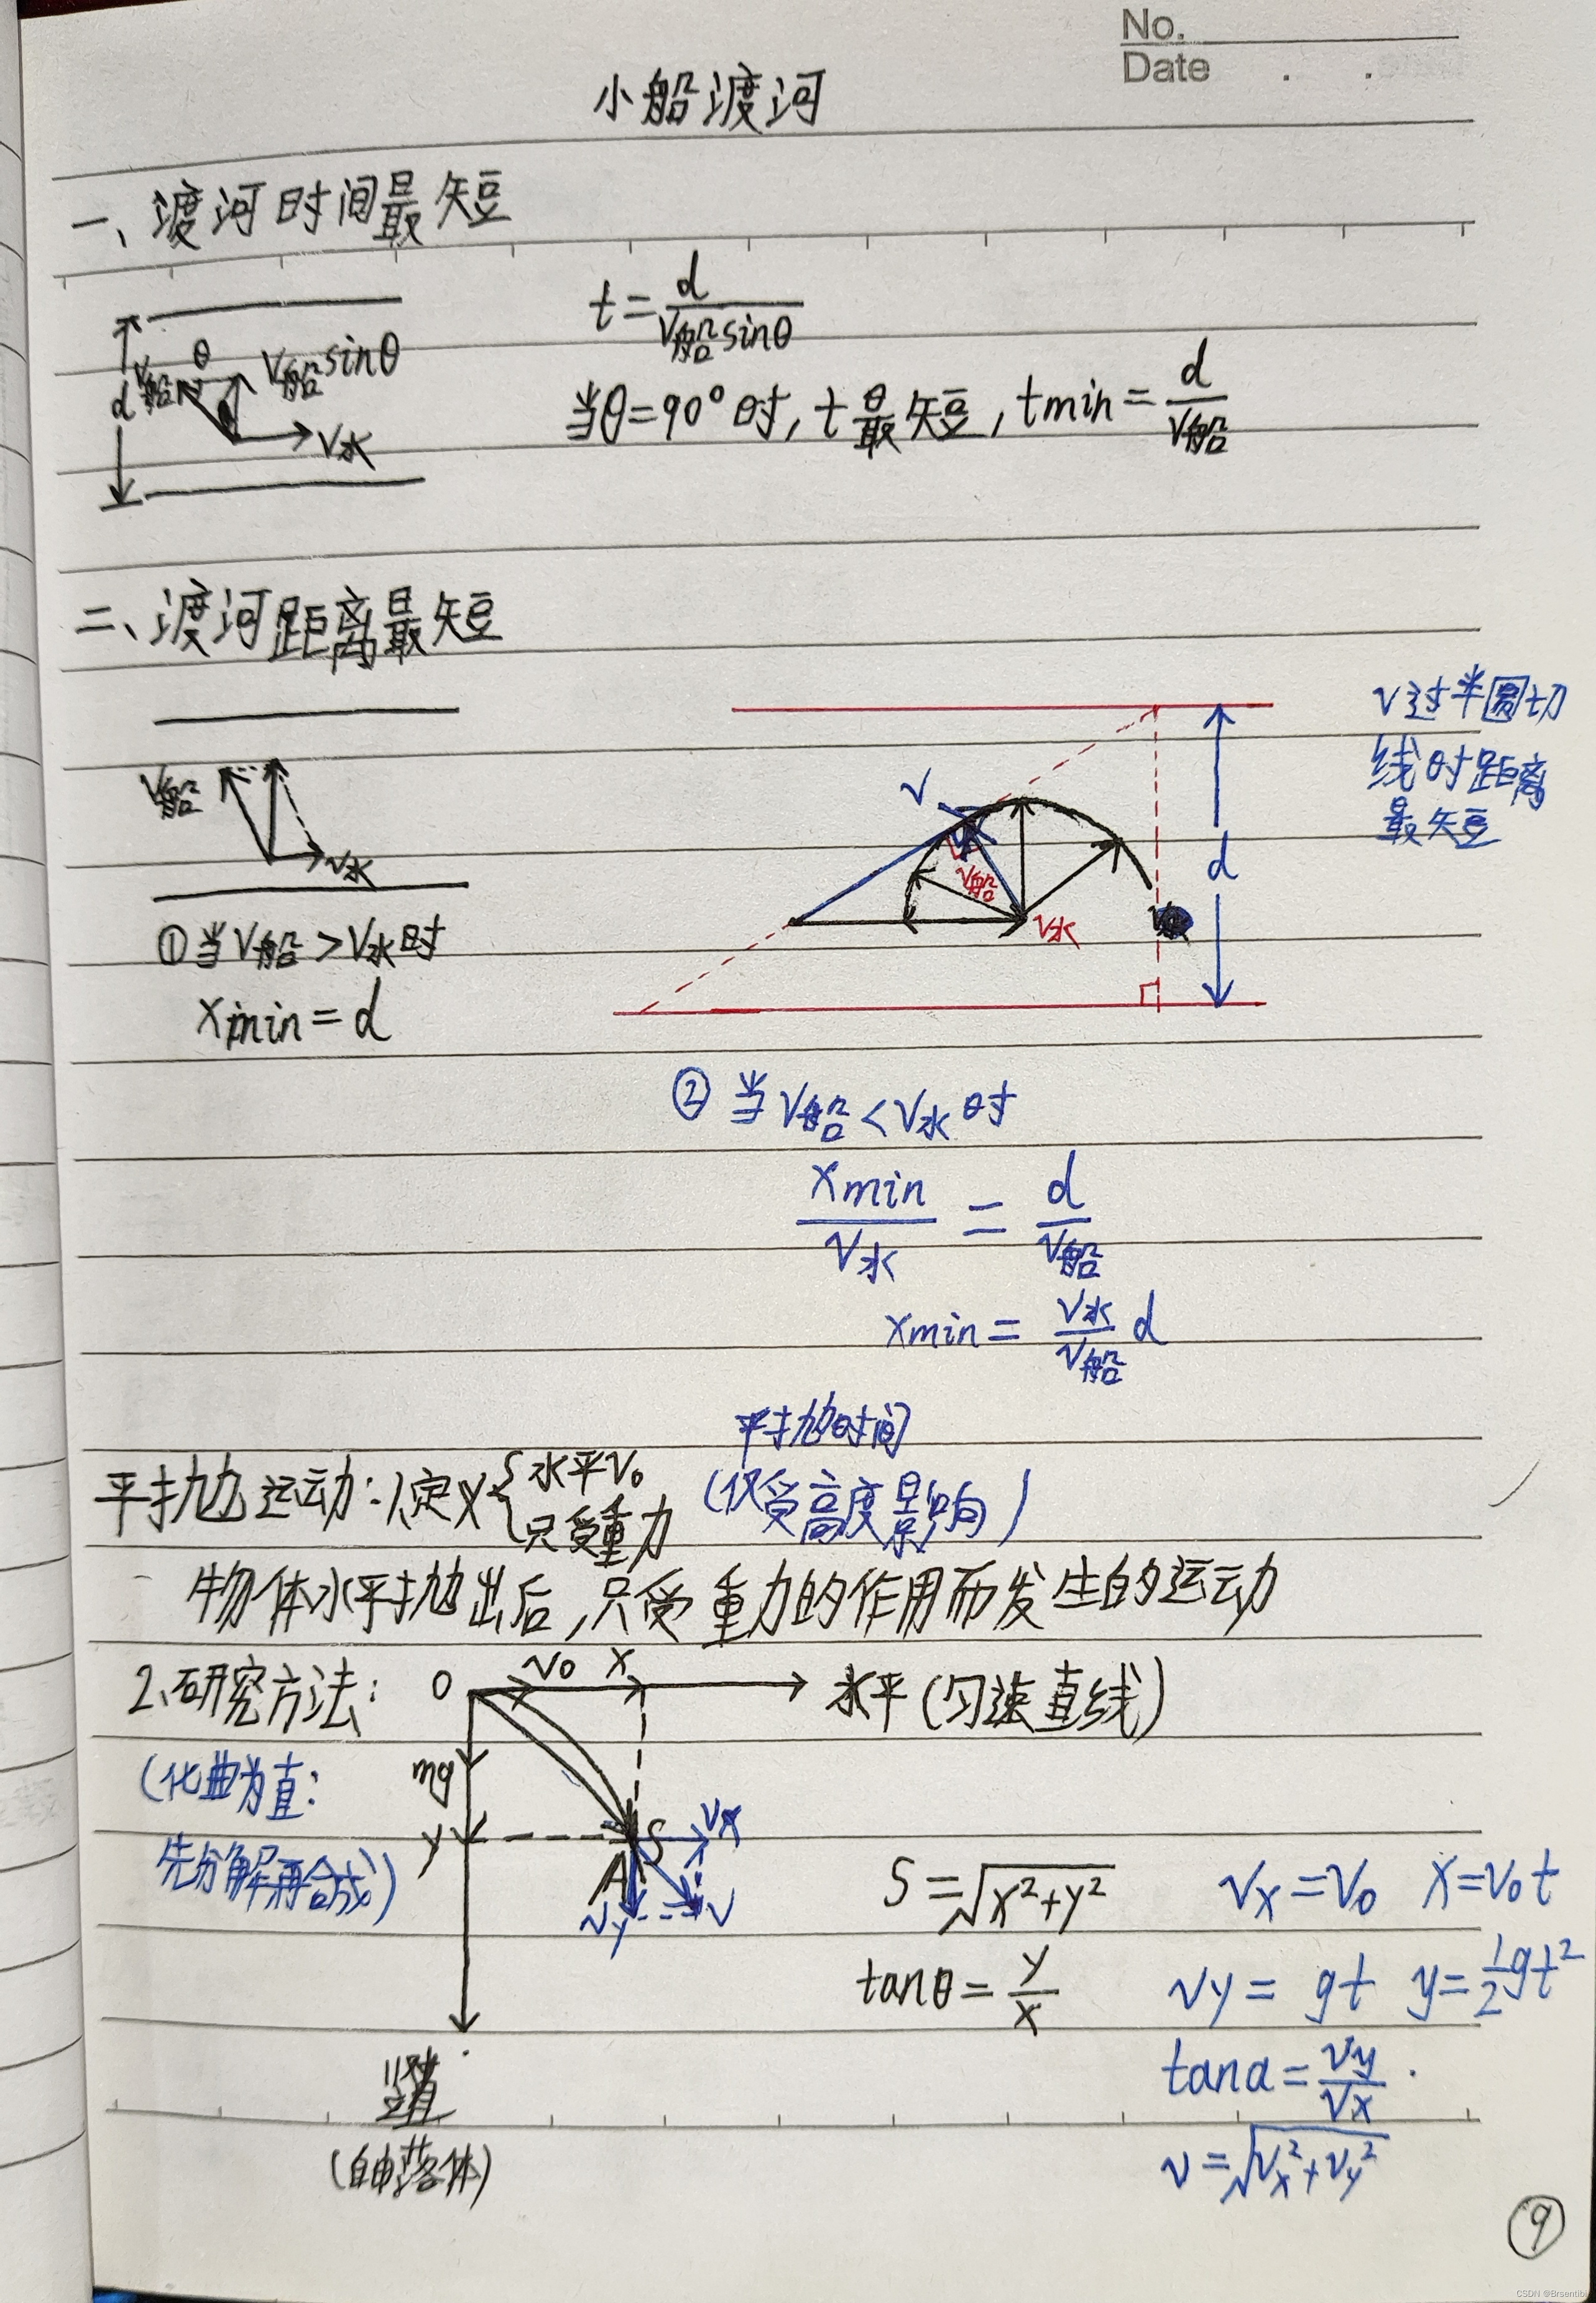 No.
Date
小船渡河
一、渡河时间最短
t=d/(v船sinθ)
d v船 θ v船sinθ
v水
当θ=90°时,t最短,tmin=d/v船
二、渡河距离最短
v船
v水
①当v船>v水时
xmin=d
v过半圆切
线时距离
最短
v
d
v船
v水
②当v船<v水时
xmin/v水=d/v船
xmin=v水/v船 d
平抛时间
(仅受高度影响)
平抛运动:1、定义{水平v₀
只受重力
物体水平抛出后,只受重力的作用而发生的运动
2、研究方法:
(化曲为直:
先分解再合成)
O v0 x 水平(匀速直线)
mg
y S vx
A
vy v
竖直
(自由落体)
S=√(x²+y²)
tanθ=y/x
vx=v₀ x=v₀t
vy=gt y=½gt²
tanα=vy/vx
v=√(vx²+vy²)
9
CSDN @Brsentibi